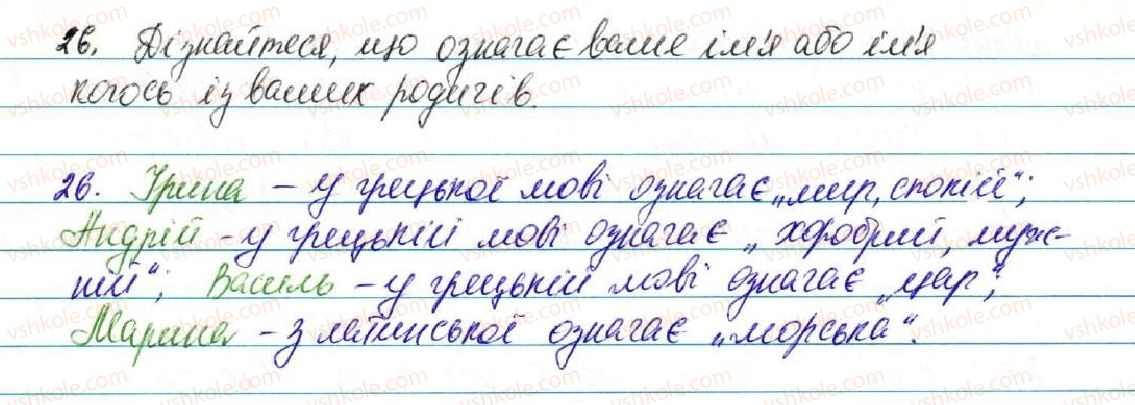 26. Дізнайтеся, що означає ваше ім'я або ім'я
когось із ваших родичів.
26. Ірина – у грецької мові означає „мир, спокій“;
Андрій – у грецькій мові означає „хоробрий, муж-
ній“; Василь – у грецькій мові означає „цар“;
Марина – з латинської означає „морська“.